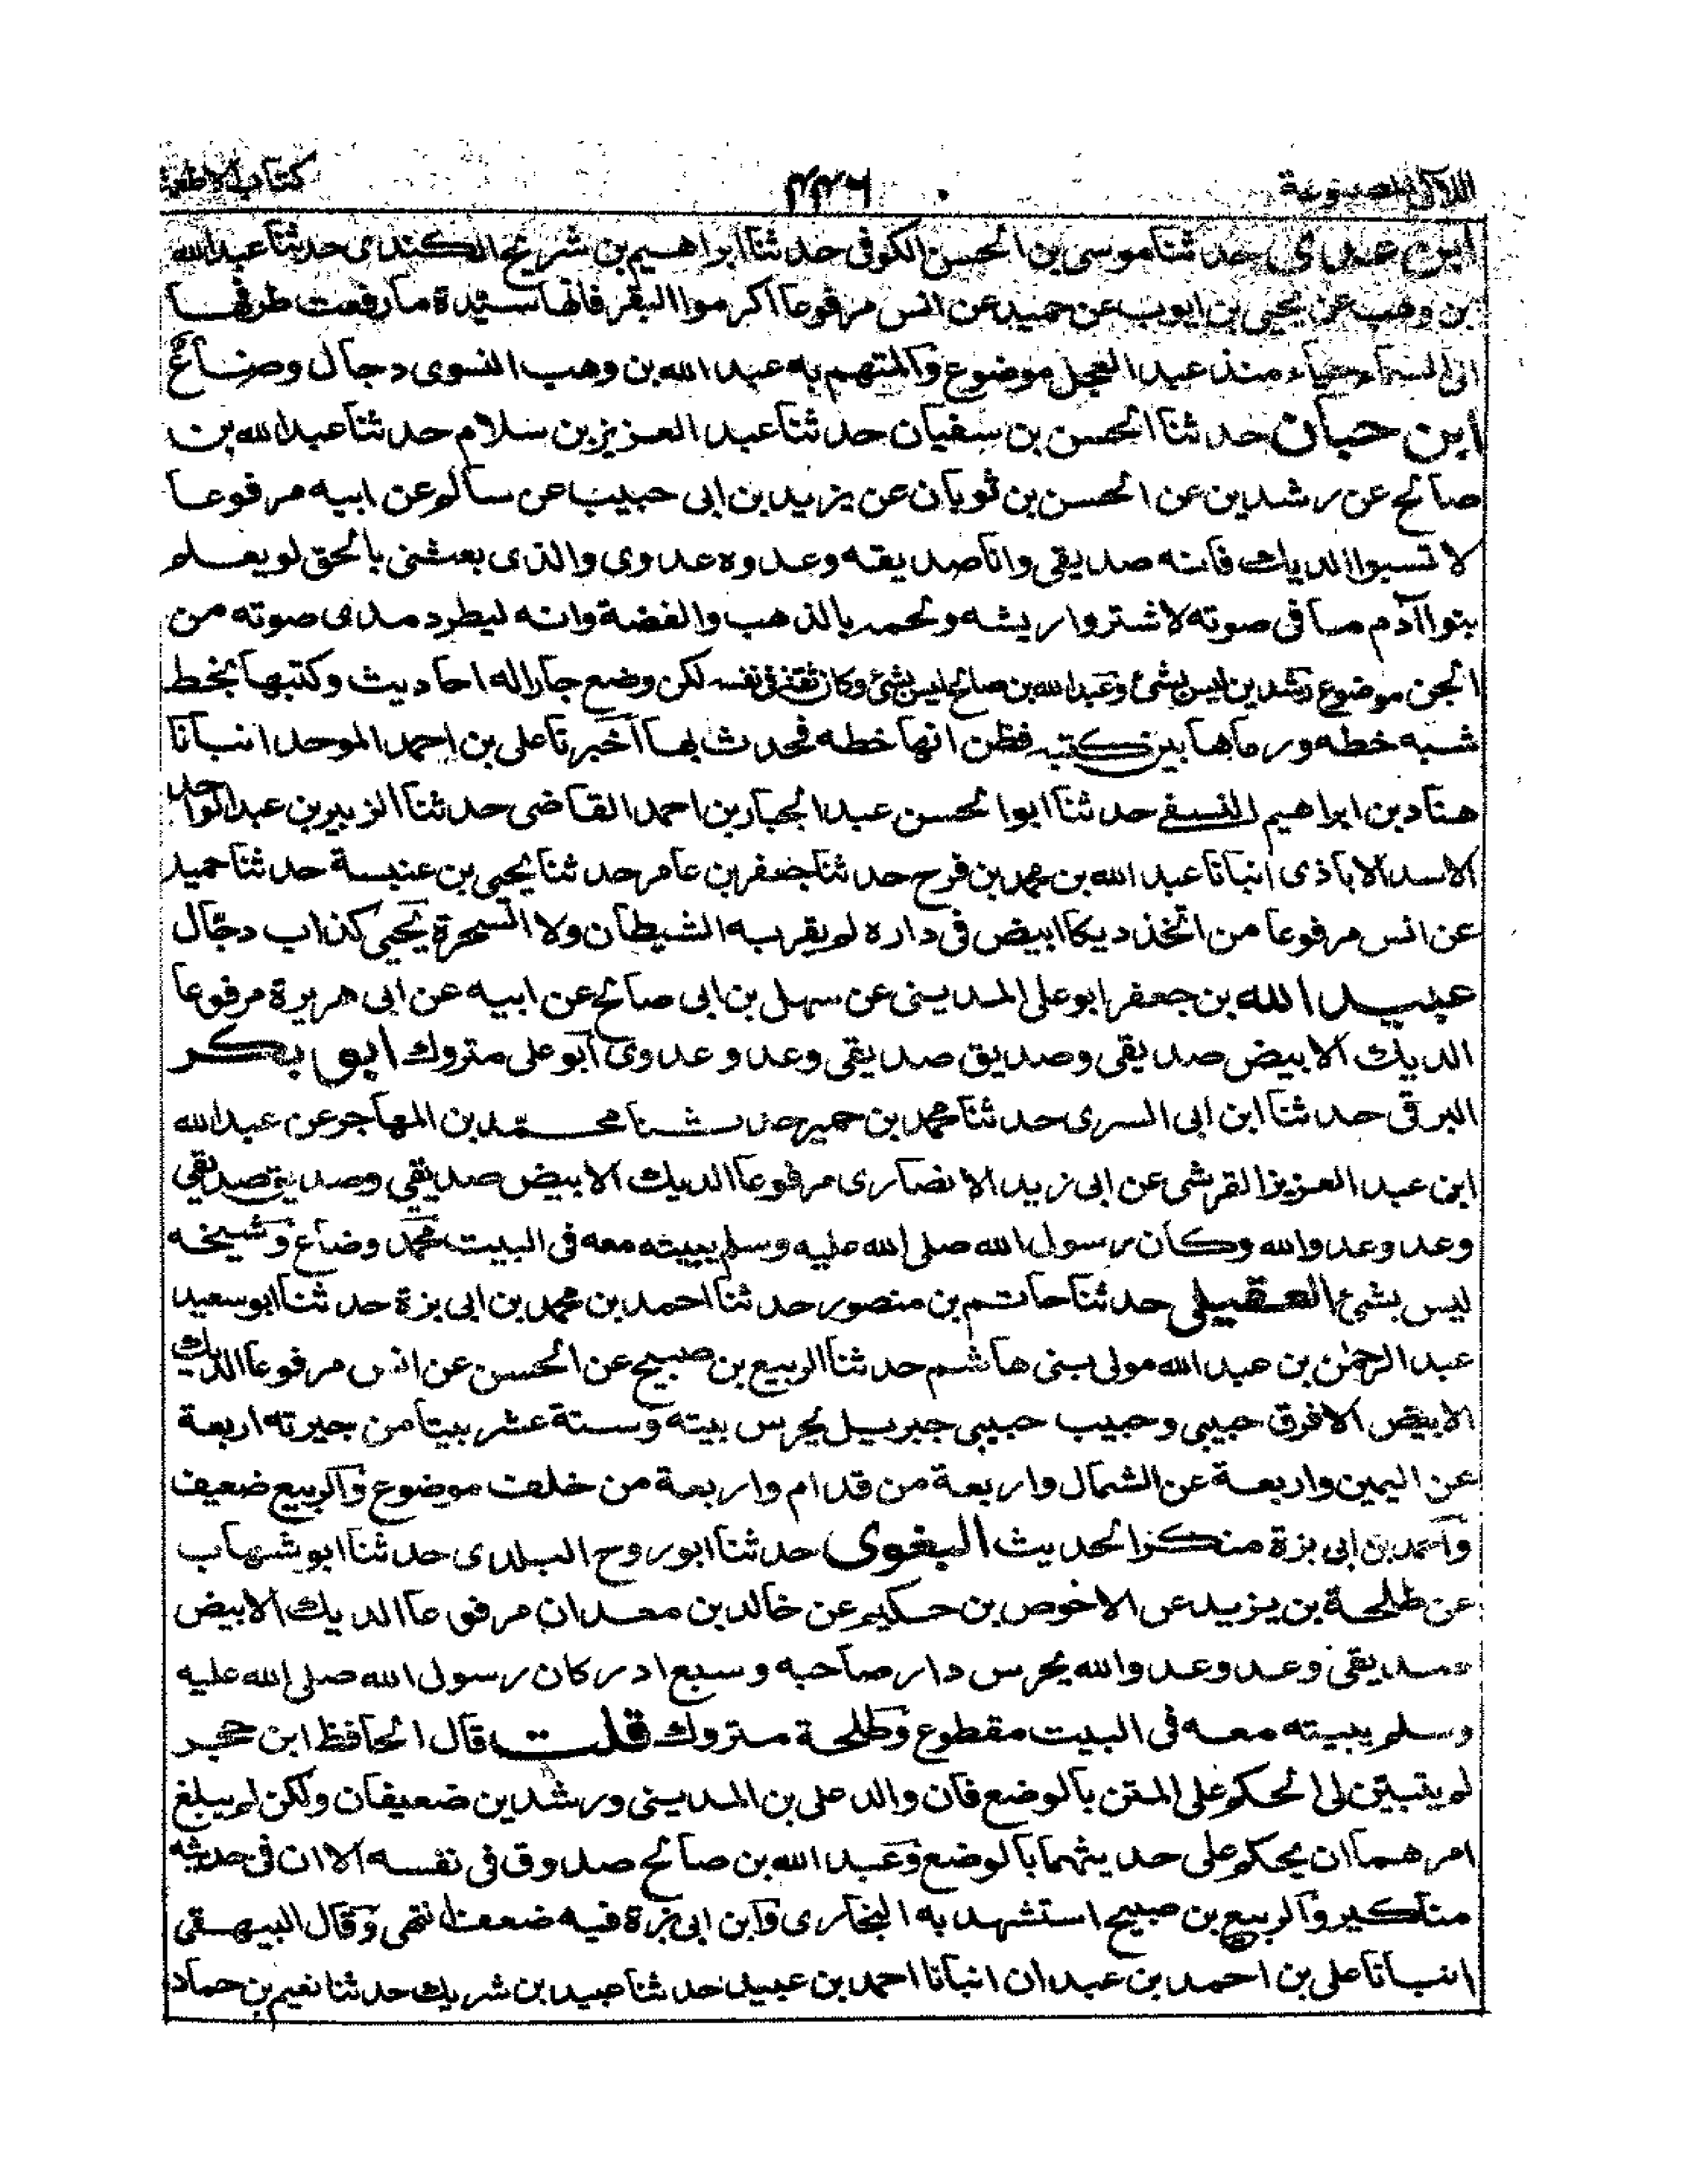 اللآلى المصنوعة ٣٣٦ كتاب الاطعمة
ابن عدى حدثنا موسى بن الحسن الكوفى حدثنا ابراهيم بن شريح الكندى حدثنا عبد الله
بن وهب عن يحيى بن ايوب عن حميد عن انس مرفوعا اكرموا البقر فانها سيدة ما رفعت طرفها
الى السماء حياء منذ عبد العجل موضوع والمتهم به عبد الله بن وهب النسوى دجال وضاع
ابن حبان حدثنا الحسن بن سفيان حدثنا عبد العزيز بن سلام حدثنا عبد الله بن
صالح عن رشدين عن الحسن بن ثوبان عن يزيد بن ابى حبيب عن سالم عن ابيه مرفوعا
لا تسبوا الديك فانه صديقى وانا صديقه وعدوه عدوى والذى بعثنى بالحق لو يعلم
بنوا آدم ما فى صوته لاشتروا ريشه ولحمه بالذهب والفضة وانه ليطرد مدى صوته من
الجن موضوع رشدين ليس بشئ وعبد الله بن صالح ليس بشئ وكان ثقة فى نفسه لكن وضع جار له احاديث وكتبها بخط
شبه خطه ورماها بين كتبه فظن انها خطه فحدث بها اخبرنا على بن احمد الموحد انبانا
هناد بن ابراهيم النسفى حدثنا ابوا لحسن عبد الجبار بن احمد القاضى حدثنا الزبير بن عبد الواحد
الاسدالاباذى انبانا عبد الله بن محمد بن فرح حدثنا جعفر بن عامر حدثنا يحيى بن عنبسة حدثنا حميد
عن انس مرفوعا من اتخذ ديكا ابيض فى داره لم يقربه الشيطان ولا السحرة يحيى كذاب دجال
عبيد الله بن جعفر ابو على المدينى عن سهل بن ابى صالح عن ابيه عن ابى هريرة مرفوعا
الديك الابيض صديقى وصديق صديقى وعدو عدوى ابو على متروك ابو بكر
البرقى حدثنا ابن ابى السرى حدثنا محمد بن حمير حدثنا محمد بن المهاجر عن عبد الله
ابن عبد العزيز القرشى عن ابى زيد الانصارى مرفوعا الديك الابيض صديقي وصديق صديقي
وعدو عدو الله وكان رسول الله صلى الله عليه وسلم يبيته معه فى البيت محمد وضاع وشيخه
ليس بشئ العقيلى حدثنا حاتم بن منصور حدثنا احمد بن محمد بن ابى بزة حدثنا ابو سعيد
عبد الرحمن بن عبد الله مولى بنى هاشم حدثنا الربيع بن صبيح عن الحسن عن انس مرفوعا الديك
الابيض الافرق حبيبى وحبيب حبيبى جبريل يحرس بيته وستة عشر بيتا من جيرته اربعة
عن اليمين واربعة عن الشمال واربعة من قدام واربعة من خلف موضوع والربيع ضعيف
واحمد بن ابى بزة منكر الحديث البغوى حدثنا ابو روح البلدى حدثنا ابو شهاب
عن طلحة بن يزيد عن الاخوص بن حكيم عن خالد بن معدان مرفوعا الديك الابيض
صديقى وعدو عدو الله يحرس دار صاحبه وسبع ادر كان رسول الله صلى الله عليه
وسلم يبيته معه فى البيت مقطوع وطلحة متروك قلت قال الحافظ ابن حجر
لم يتبين لى الحكم على المتن بالوضع فان والد على بن المدينى ورشدين ضعيفان ولكن لم يبلغ
امرهما ان يحكم على حديثهما بالوضع وعبد الله بن صالح صدوق فى نفسه الا ان فى حديثه
مناكير والربيع بن صبيح استشهد به البخارى وابن ابى بزة فيه ضعف انتهى وقال البيهقى
انبانا على بن احمد بن عبدان انبانا احمد بن عبيد حدثنا عبيد بن شريك حدثنا نعيم بن حماد